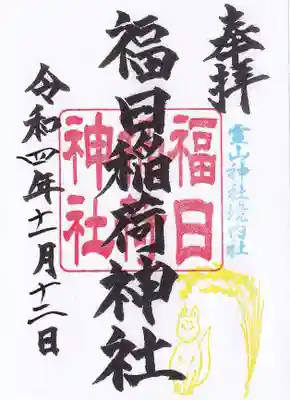 奉拝
霊山神社境内社
福日稲荷神社
福日稲荷神社
令和四年十一月十二日